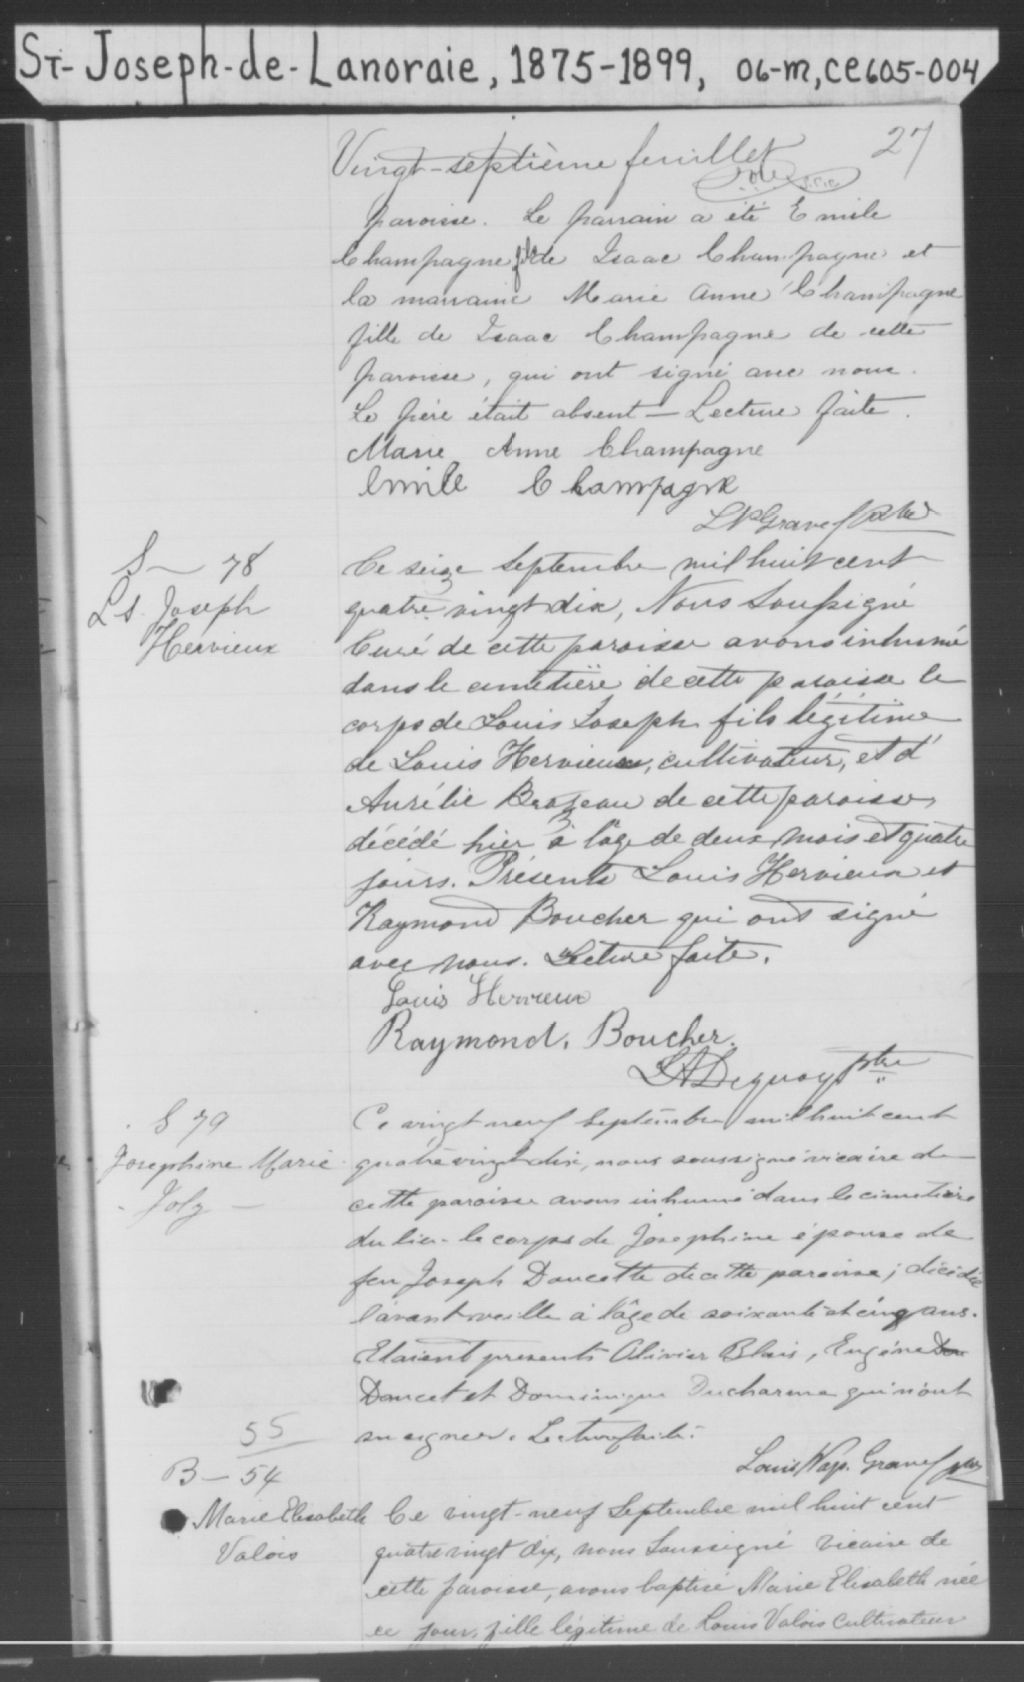 St-Joseph-de-Lanoraie, 1875-1899, 06-M, CE605-004
Vingt-septième feuillet 27
paroisse. Le parrain a été Emile
Champagne fils de Isaac Champagne et
la marraine Marie Anne Champagne
fille de Isaac Champagne de cette
paroisse, qui ont signé avec nous.
Le père était absent — Lecture faite.
Marie Anne Champagne
Emile Champagne
L N Gravel Ptre
S — 78
Ls Joseph
Hervieux
Ce seize Septembre mil huit cent
quatre vingt dix, Nous Soussigné
Curé de cette paroisse avons inhumé
dans le cimetière de cette paroisse le
corps de Louis Joseph fils légitime
de Louis Hervieux, cultivateur, et d'
Aurélie Brazeau de cette paroisse,
décédé hier à l'âge de deux mois et quatre
jours. Présents Louis Hervieux et
Raymond Boucher qui ont signé
avec nous. Lecture faite.
Louis Hervieux
Raymond. Boucher.
Ptre
S 79
Josephine Marie
Joly —
Ce vingt neuf Septembre mil huit cent
quatre vingt dix, nous soussigné vicaire de
cette paroisse avons inhumé dans le cimetière
du lieu le corps de Josephine épouse de
feu Joseph Doucette de cette paroisse; décédée
l'avant veille à l'âge de soixante et cinq ans.
Etaient presents Olivier Blais, Eugène Dou
Doucet et Dominique Ducharme qui n'ont
su signer. Lecture faite.
Louis Nap. Gravel ptre
55
B — 54
Marie Elisabeth
Valois
Ce vingt-neuf Septembre mil huit cent
quatre vingt dix, nous Soussigné vicaire de
cette paroisse, avons baptisé Marie Elisabeth née
ce jour, fille légitime de Louis Valois Cultivateur